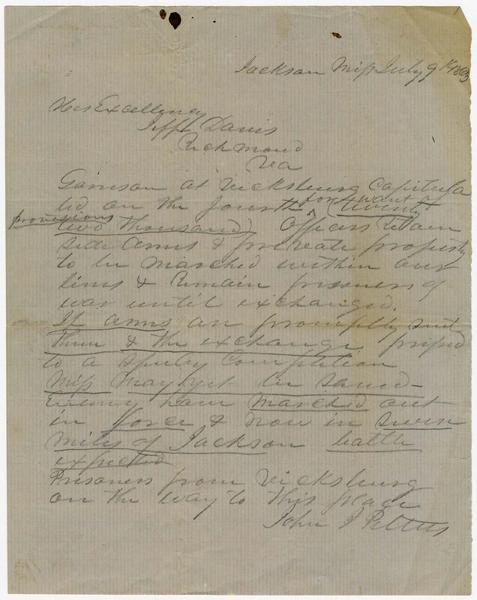 Jackson Miss July 9th 1863
His Excellency
Jeff Davis
Richmond
Va
Garrison at Vicksburg Capitula
ted on the fourth for want of
provisions (twenty
two thousand) Officers retain
side arms & private property
to be marched within our
lines & remain prisoners of
war until exchanged.
If arms are promptly sent
them & the exchange pressed
to a speedy completion
Miss may yet be saved-
Enemy have marched out
in force & now in seven
miles of Jackson battle
expected
Prisoners from Vicksburg
on the way to this place
John J Pettus